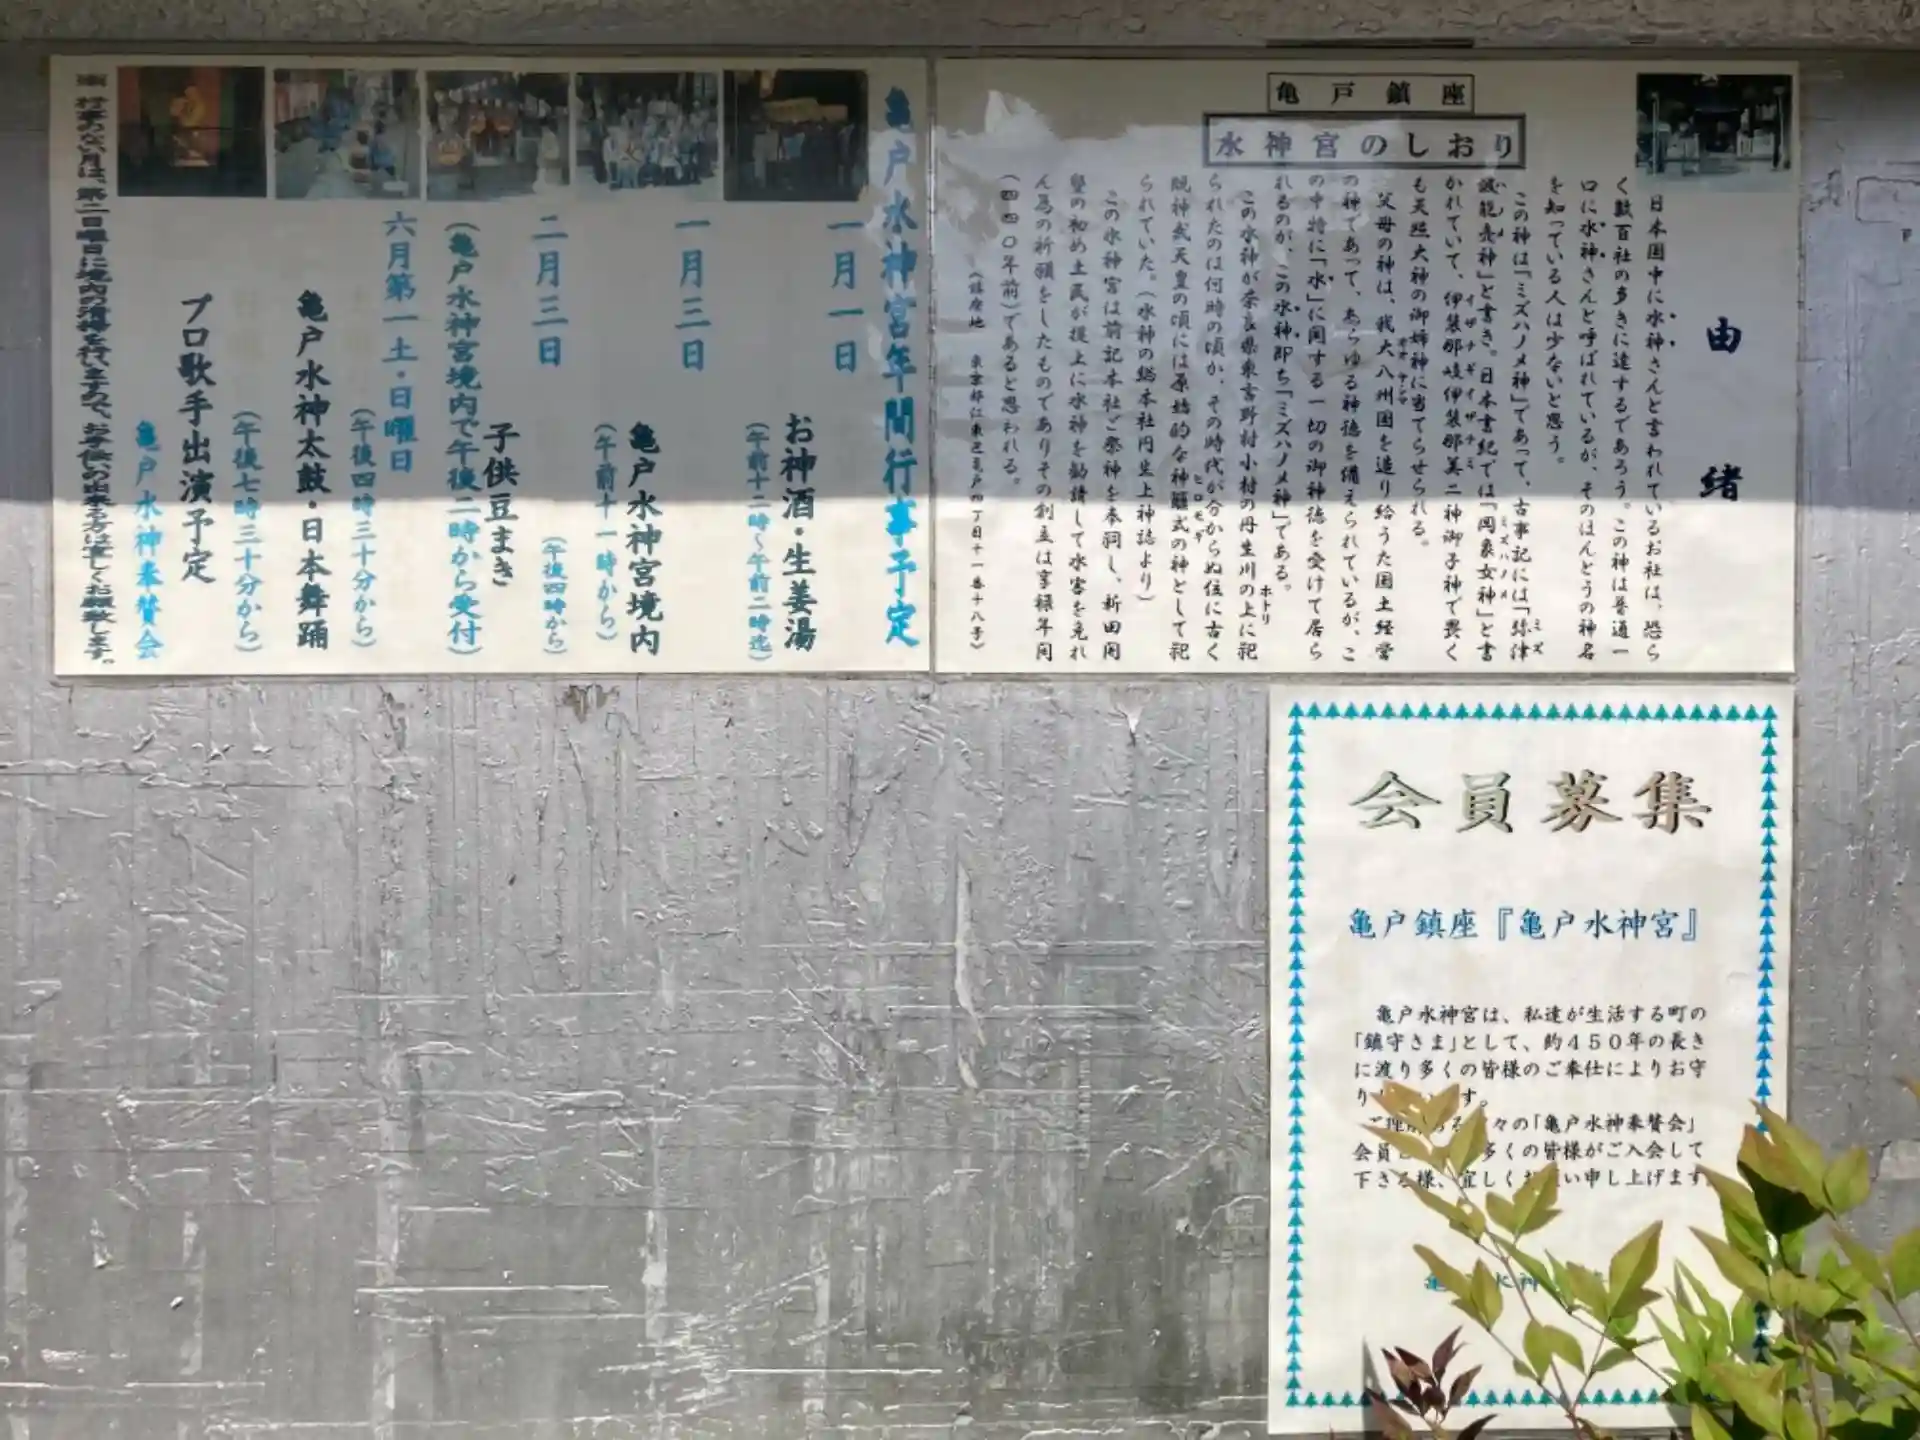 亀戸鎮座
水神宮のしおり
由緒
日本国中に水神さんと言われているお社は、恐ら
く数百社の多きに達するであろう。この神は普通一
口に水神さんと呼ばれているが、そのほんとうの神名
を知っている人は少ないと思う。
この神は「ミズハノメ神」であって、古事記には「弥津
波能売神」と書き。日本書紀では「罔象女神」と書
かれていて、伊装那岐伊装那美二神御子神で畏く
も天照大神の御姉神に当てらせられる。
父母の神は、我大八州国を造り給うた国土経営
の神であって、あらゆる神徳を備えられているが、こ
の中特に「水」に関する一切の御神徳を受けて居ら
れるのが、この水神即ち「ミズハノメ神」である。
この水神が奈良県東吉野村小村の丹生川の上に祀
られたのは何時の頃か、その時代が分からぬ位に古く
既神武天皇の頃には原始的な神籬式の神として祀
られていた。(水神の総本社丹生上神誌より)
この水神宮は前記本社ご祭神を奉祠し、新田開
墾の初め土民が堤上に水神を勧請して水害を免れ
ん為の祈願をしたものでありその創立は享禄年間
(四四〇年前)であると思われる。
(鎮座地 東京都江東区亀戸四丁目十一番十八号)
亀戸水神宮年間行事予定
一月一日
お神酒・生姜湯
(午前十二時〜午前二時迄)
一月三日
亀戸水神宮境内
(午前十一時から)
二月三日
(午後四時から)
子供豆まき
(亀戸水神宮境内で午後二時から受付)
六月第一土・日曜日
(午後四時三十分から)
亀戸水神太鼓・日本舞踊
(午後七時三十分から)
プロ歌手出演予定
亀戸水神奉賛会
行事のない月は、第二日曜日に境内の清掃を行いますので、お手伝いの出来る方は宜しくお願い致します。
会員募集
亀戸鎮座『亀戸水神宮』
亀戸水神宮は、私達が生活する町の
「鎮守さま」として、約450年の長き
に渡り多くの皆様のご奉仕によりお守
り す。
ご理 る 々の「亀戸水神奉賛会」
会員 多くの皆様がご入会して
下さる様、宜しくお い申し上げます
亀 水神